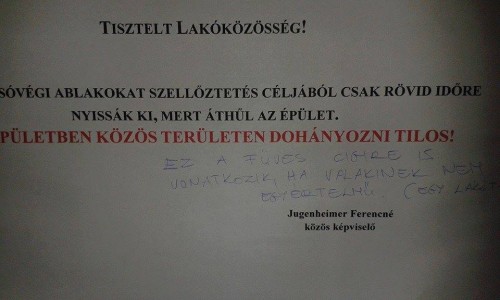 TISZTELT LAKÓKÖZÖSSÉG!
SÓVÉGI ABLAKOKAT SZELLŐZTETÉS CÉLJÁBÓL CSAK RÖVID IDŐRE
NYISSÁK KI, MERT ÁTHŰL AZ ÉPÜLET.
PÜLETBEN KÖZÖS TERÜLETEN DOHÁNYOZNI TILOS!
EZ A FÜVES CIGIRE IS
VONATKOZIK, HA VALAKINEK NEM
EGYÉRTELMŰ. (EGY LAKÓ
Jugenheimer Ferencné
közös képviselő